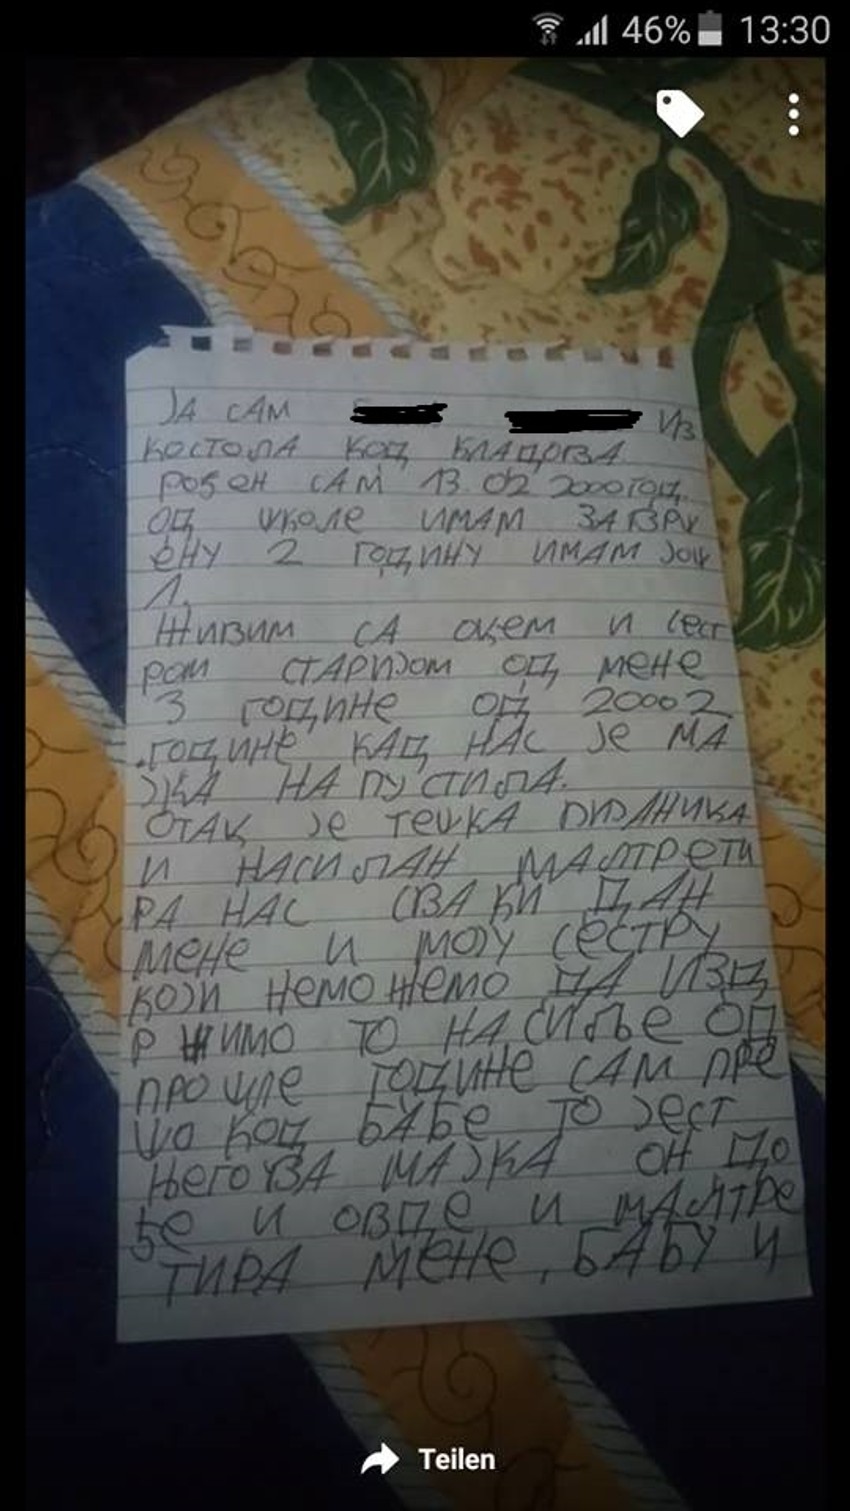 46% 13:30
ЈА САМ ИЗ
КОСТОЛА КОД КЛАДОВА
РОЂЕН САМ 13.02 2000 ГОД.
ОД ШКОЛЕ ИМАМ ЗАВРШ
ЕНУ 2 ГОДИНУ ИМАМ ЈОШ
1.
ЖИВИМ СА ОЦЕМ И СЕСТ
РОМ СТАРИЈОМ ОД МЕНЕ
3 ГОДИНЕ ОД 20002
.ГОДИНЕ КАД НАС ЈЕ МА
ЈКА НАПУСТИЛА.
ОТАЦ ЈЕ ТЕШКА ПИЈАНИЦА
И НАСИЛАН МАЛТРЕТИ
РА НАС СВАКИ ДАН
МЕНЕ И МОЈУ СЕСТРУ
КОЈИ НЕМОЖЕМО ДА ИЗД
РЖИМО ТО НАСИЉЕ ОД
ПРОШЛЕ ГОДИНЕ САМ ПРЕ
ШО КОД БАБЕ ТО ЈЕСТ
ЊЕГОВА МАЈКА ОН ДО
ЂЕ И ОВДЕ И МАЛТРЕ
ТИРА МЕНЕ, БАБУ И
Teilen